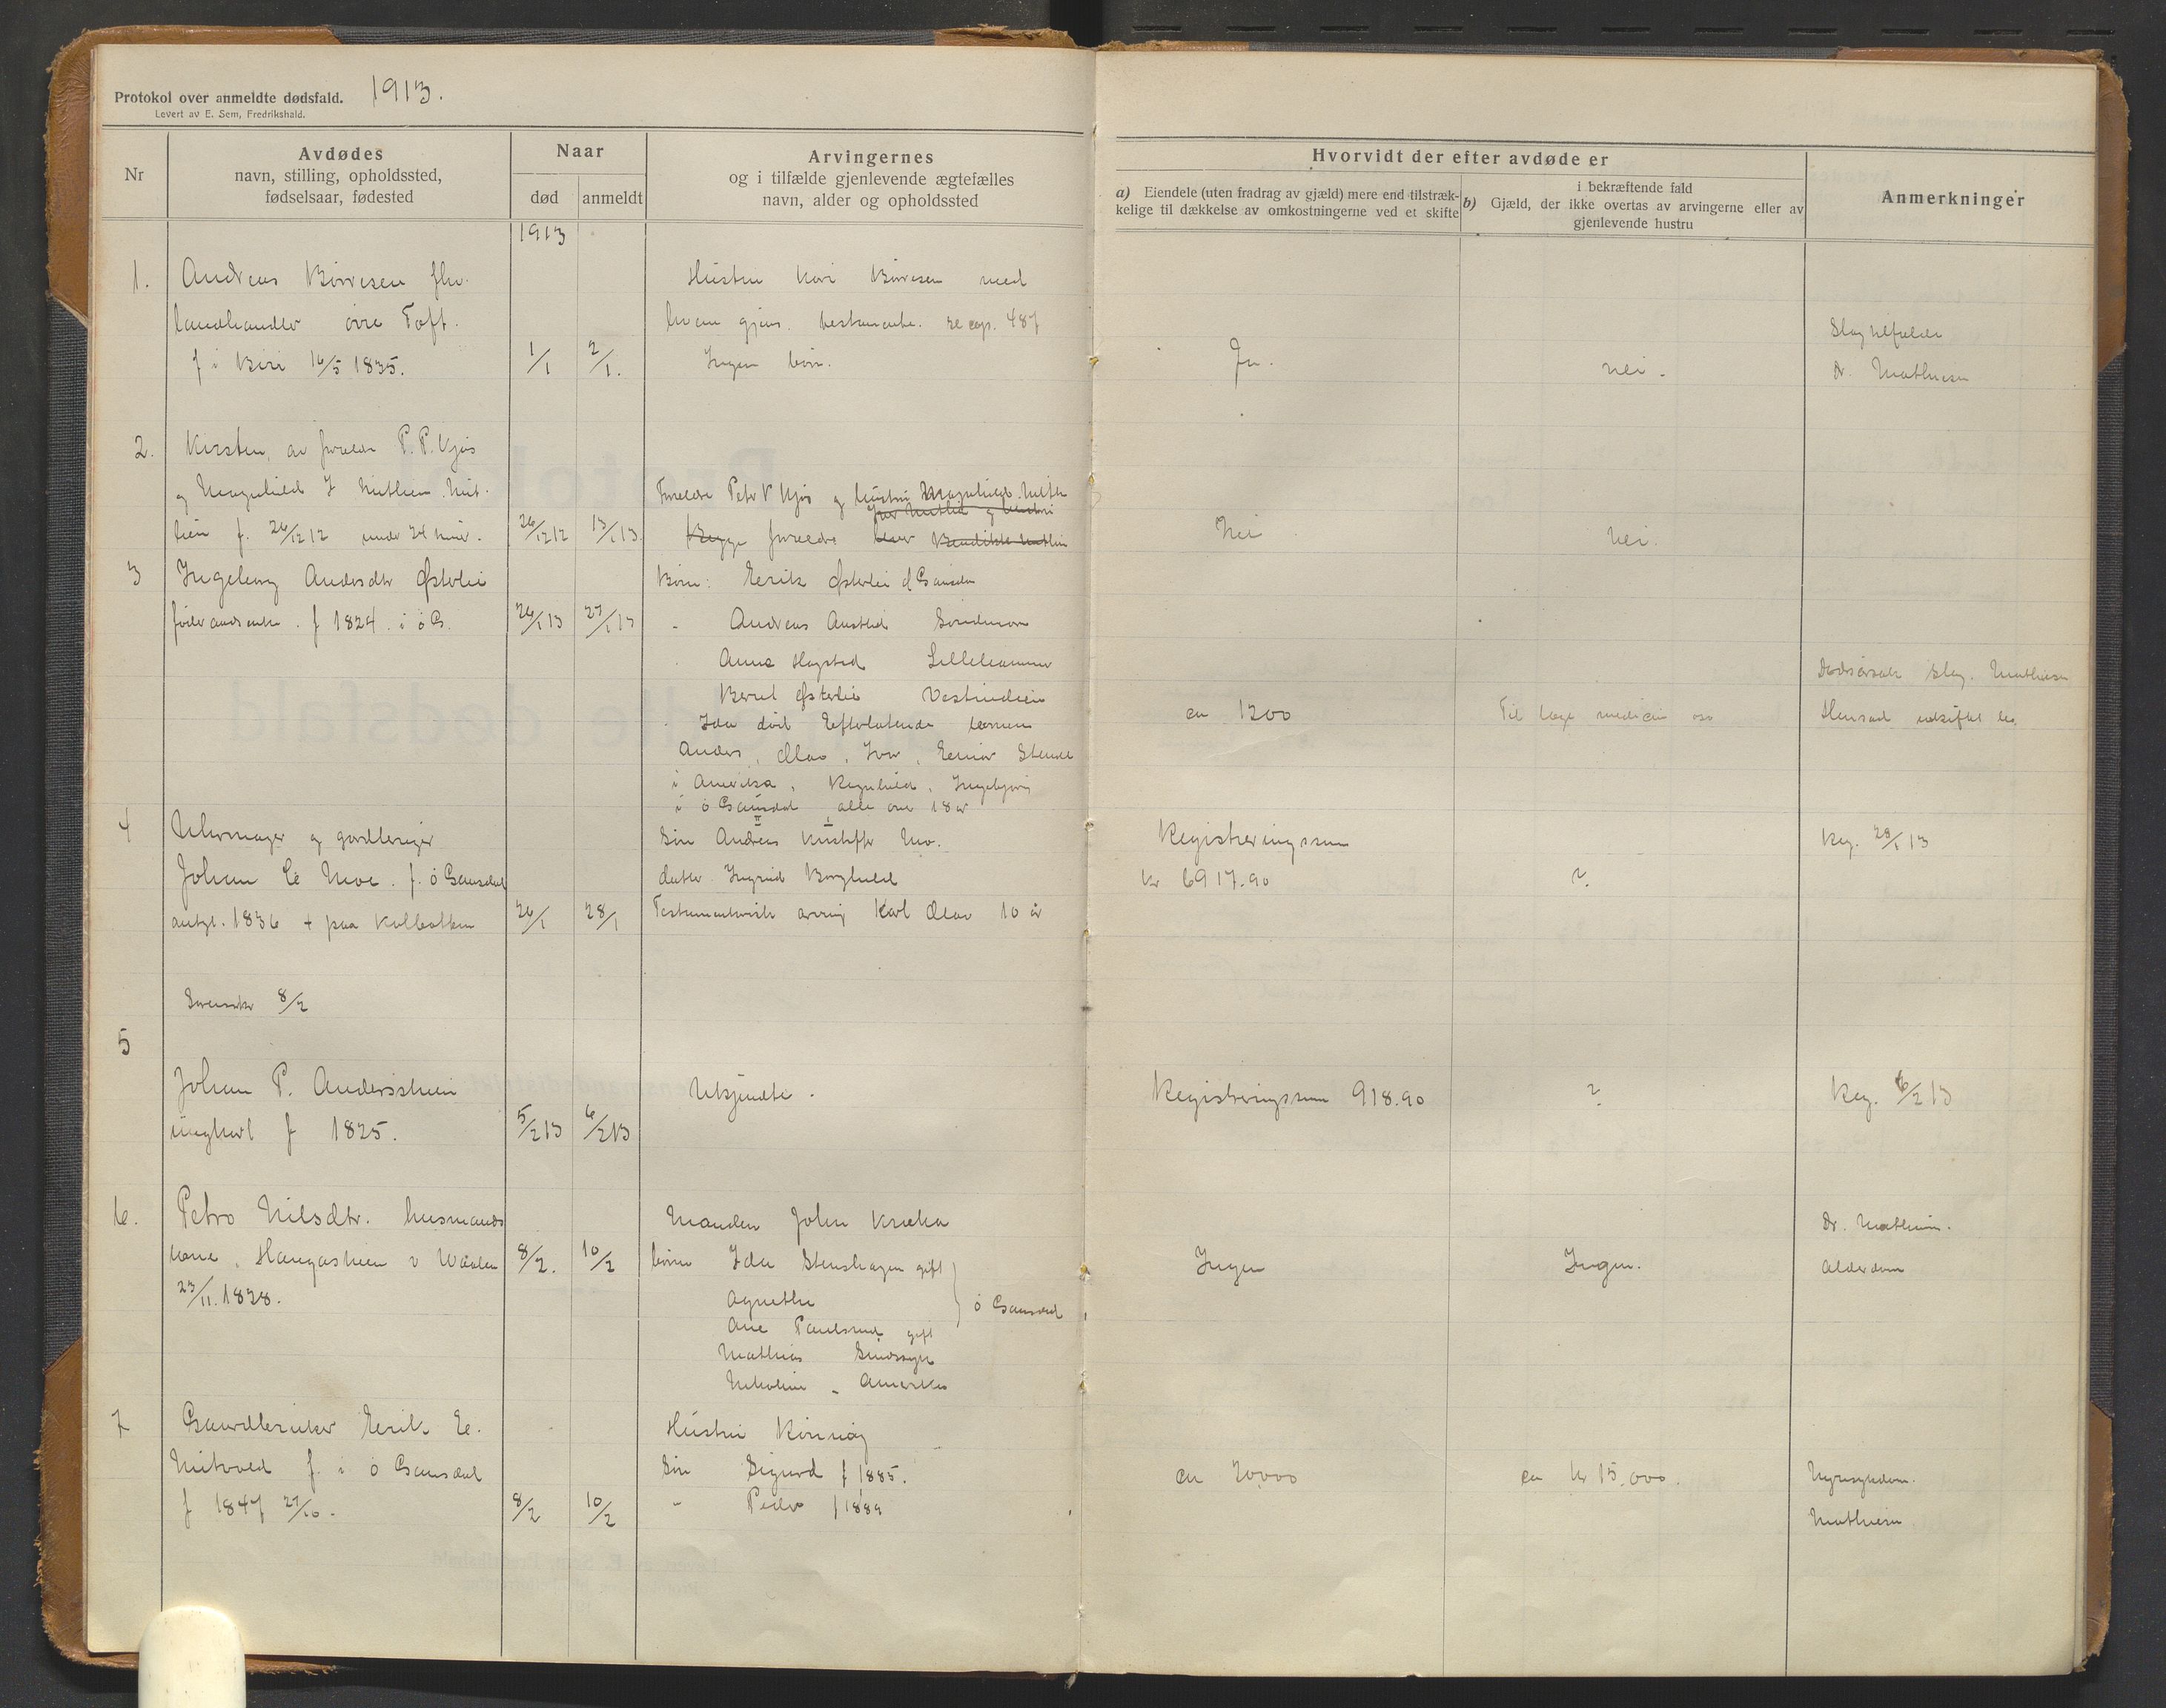 Protokol over anmeldte dødsfald. 1913.
Levert av E. Sem, Fredrikshald.
Nr
Avdødes
navn, stilling, opholdssted,
fødselsaar, fødested
Naar
død
anmeldt
Arvingernes
og i tilfælde gjenlevende ægtefælles
navn, alder og opholdssted
Hvorvidt der efter avdøde er
a) Eiendele (uten fradrag av gjæld) mere end tilstræk-
kelige til dækkelse av omkostningerne ved et skifte
i bekræftende fald
b) Gjæld, der ikke overtas av arvingerne eller av
gjenlevende hustru
Anmerkninger
1913
1. Andreas Børresen fhv.
landhandler øvre Toft.
f i Biri 16/5 1835.
1/1 2/1.
Hustru Kari Børresen med
hvem gjens. testamente.
Ingen børn.
Ja.
nei.
Slagtilfælde
Dr. Mathiesen
2. Kirsten, av foreldre P. P. Kjøs
og Magnhild
f. 26/12 12 under 24 timer.
26/12 12 13/1 13
Foreldre Peter P Kjøs og hustru Magnhild
Begge foreldre lever
Nei
nei.
3 Ingeborg Andersdtr Østerlie
føderaadsenke. f 1824. i ø G.
26/1 13 27/1 13
Børn: Erik Østerlie ø Gausdal
- Andreas
Anne Lillehammer
Bernt Østerlie Vestindien
Ida død Efterlatende børnene
Anders, Olav, Ivar, Einar
i Amerika, Ragnhild, Ingebjørg
i ø Gausdal alle over 18 år
ca 1200
Til læge medicin osv
Dødsårsak slag. Mathiesen
4 Uhrmager og gardbruger
Johan E Moe. f. ø Gausdal
antgl. 1836 + paa Kolbotten
26/1 28/1
Søn Andreas Kristoffer Mo.
datter Ingrid Borghild
Testamentarisk arving Karl Olav 10 år
Registreringssum
kr 6917.90
?
Reg. 28/1 13
8/2
5
Johan P. Andersheien
ungkarl f 1825.
5/2 13 6/2 13
Ukjendte.
Registreringssum 918.90
?
Reg. 6/2 13
6. Petro Nilsdtr. husmands
kone, Haugasheien v
23/11. 1828.
8/2. 10/2
Manden John
børn Ida Stenshagen gift
Agnethe
Ane Paulsrud gift
ø Gausdal
Mathias
Nikoline - Amerika
Ingen
Ingen.
Dr. Mathiesen.
Alderdom
7 Gaardbruker Erik E.
f. i ø Gausdal
f 1847 27/10.
8/2 10/2
Hustru
Søn Sigurd f 1885.
- Peder f 1889
ca 20000
ca kr 15.000.
Nyresykdom.
Mathiesen